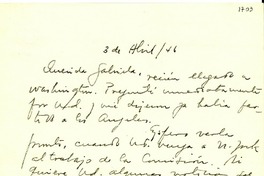 1703
3 de Abril/46
Querida Gabriela, recién llegado a
Washington. Pregunté inmediatamente
por Ud. y me dijeron ya había par-
tido a Los Angeles.
Espero verla
pronto, cuando Ud. venga a N. York
al trabajo de la Comisión. Si
quiere Ud. algunas noticias del